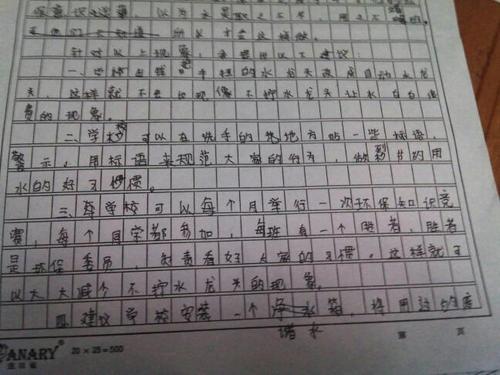 保意识还薄，以为水是取之不尽，用之不竭的。
所以才会这样做。
针对以上现象，我提出以下建议：
一、学校把我们手拧的水龙头改成自动水龙
头，这样就不会出现像不拧水龙头让水白白浪
费的现象。
二、学校可以在洗手的地方贴一些标语，
警示，用标语来规范大家的行为，做到节约用
水的好习惯。
三、学校可以每个月举行一次环保知识竞
赛，每个同学都参加，每班有一个胜者，胜者
是环保委员，负责看好大家的习惯。这样就可
以大大减少不拧水龙头的现象。
四、建议学校安装一个水箱，将用过的废
诸水
第 页
ANARY®
20×25=500